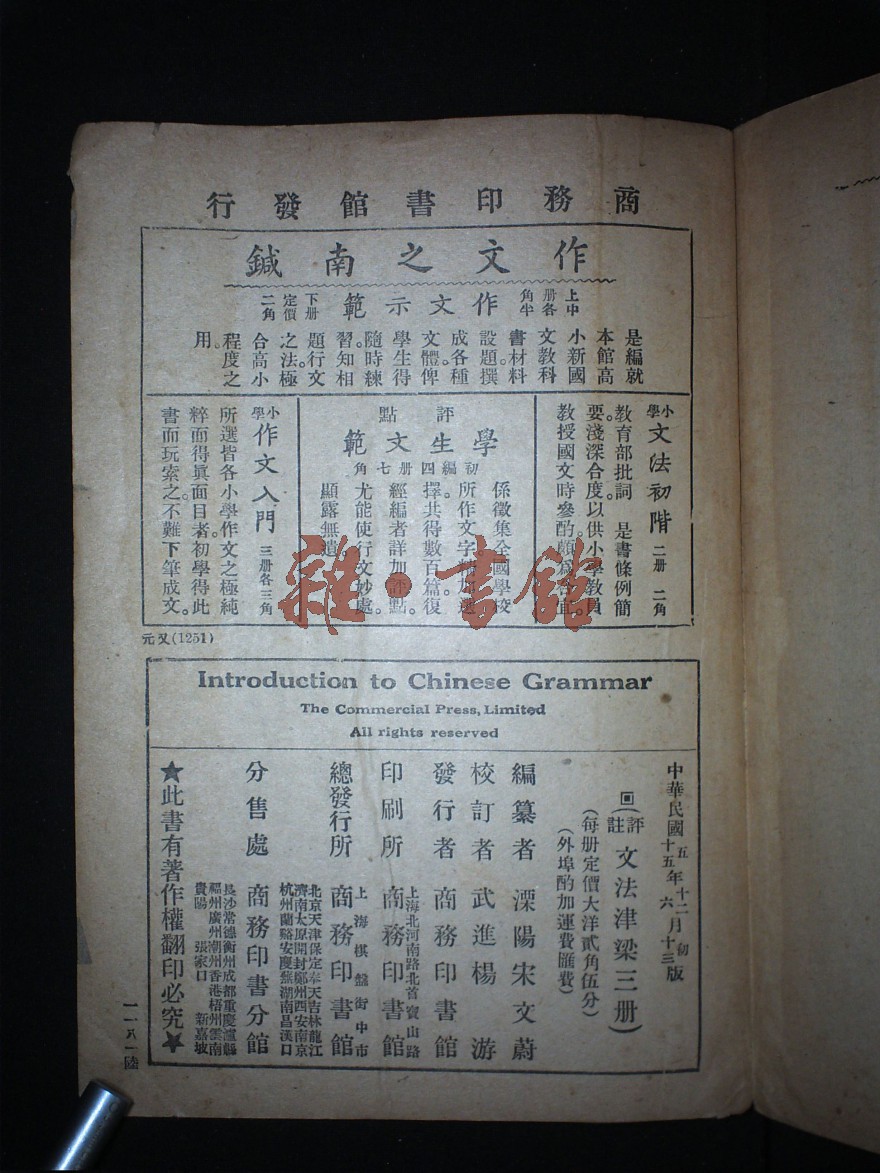 商務印書館發行
作文之南鍼
上中册各角半
作文示範
下册定價二角
是編就
本館高
小新國
文教科
書材料
設題撰
成各種
文體。俾
學生得
隨時練
習。知相
題行文
之法。極
合高小
程度之
用。
小學 文法初階 二册 二角
教育部批詞 是書條例簡
要。淺深合度。以供小學教員
教授國文時參酌。頗爲合宜。
評點
學生文範
初編四册七角
係徵集全國學校
所作文字
擇。共得數百篇。復
經編者詳加評點。
尤能使行文妙處
顯露無遺。
小學 作文入門 三册各三角
所選皆各小學作文之極純
粹而得眞面目者。初學得此
書而玩索之。不難下筆成文。
元又(1251)
Introduction to Chinese Grammar
The Commercial Press, Limited
All rights reserved
中華民國五年十二月初版
十五年六月十三版
(評註文法津梁三册)
(每册定價大洋貳角伍分)
(外埠酌加運費匯費)
編纂者 溧陽宋文蔚
校訂者 武進楊游
發行者 商務印書館
上海北河南路北首寶山路
印刷所 商務印書館
上海棋盤街中市
總發行所 商務印書館
北京天津保定奉天吉林龍江
濟南太原開封鄭州西安南京
杭州蘭谿安慶蕪湖南昌漢口
分售處 商務印書分館
長沙常德衡州成都重慶瀘縣
福州廣州潮州香港梧州雲南
貴陽 張家口 新嘉坡
★此書有著作權翻印必究★
一一八一陸
雜·書館